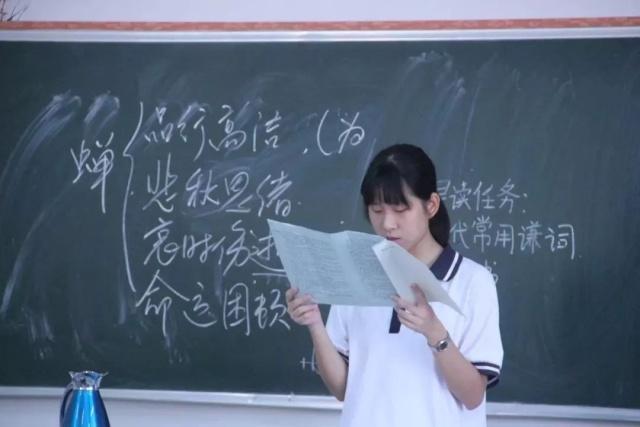 蝉
品行高洁，(为
悲秋思绪
哀时伤
命运困顿
读任务：
代常用谦词